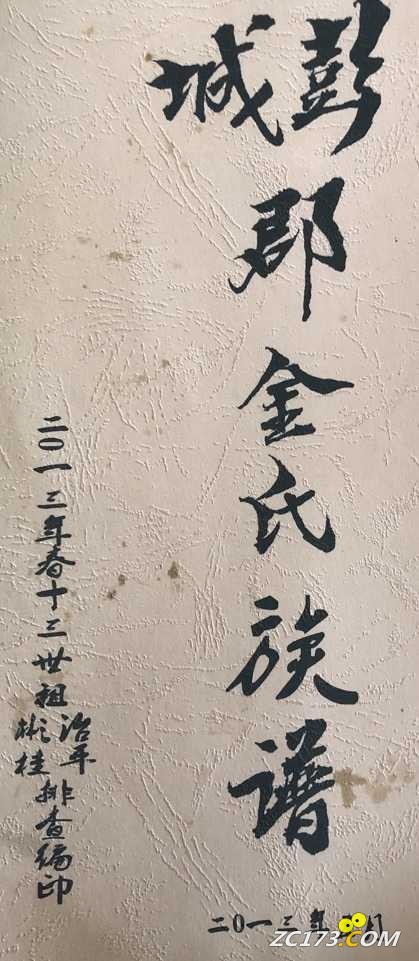 彭城郡金氏族谱
二〇一三年春十三世祖治平彬桂排查编印
二〇一三年
ZC173.COM